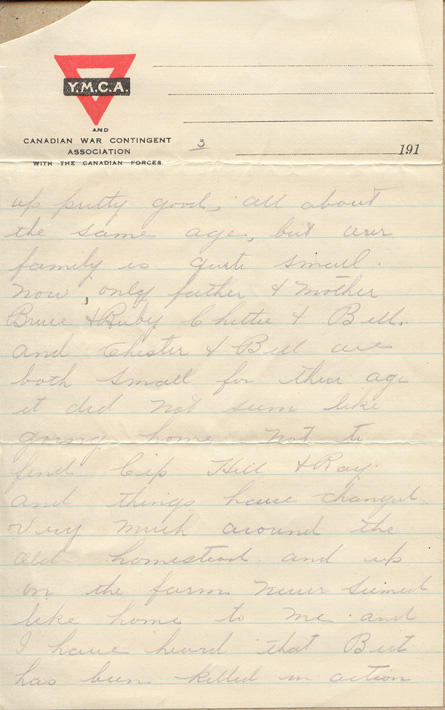 Y.M.C.A.
AND
CANADIAN WAR CONTINGENT
ASSOCIATION
WITH THE CANADIAN FORCES.
3
191
up pretty good, all about
the same age, but our
family is quite small.
now, only father & Mother
Bruce & Ruby Chettie & Bill.
and Chester & Bill are
both small for their age
it did not seem like
going home not to
find Cip Hill & Ray.
and things have changed
Very much around the
old homestead and up
on the farm never seemed
like home to me and
I have heard that Bert
has been killed in action